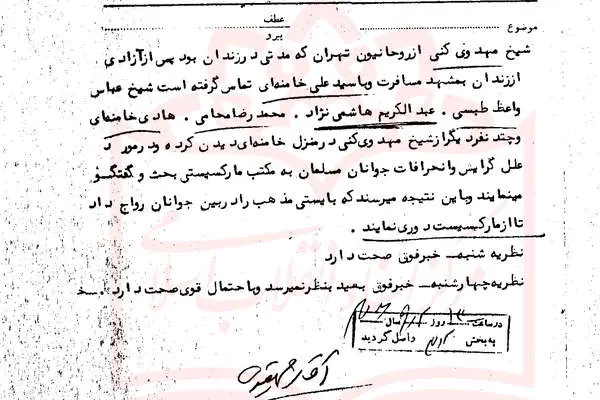 عطف
موضوع
پیرو
شیخ مهدوی کنی ازروحانیون تهران که مدتی درزندان بود پس ازآزادی
اززندان بمشهد مسافرت وباسیدعلی خامنه‌ای تماس گرفته است شیخ عباس
واعظ طبسی ـ عبدالکریم هاشمی نژاد ـ محمد رضامحامی ـ هادی خامنه‌ای
وچند نفردیگرازشیخ مهدوی‌کنی درمنزل خامنه‌ای دیدن کرده ودرمورد
علل گرایش وانحرافات جوانان مسلمان به مکتب مارکسیستی بحث و گفتگو
مینمایند وباین نتیجه میرسندکه بایستی مذهب رادربین جوانان رواج داد
تاازمارکسیست دوری نمایند ـ
نظریه شنبه ـ خبرفوق صحت دارد
نظریه چهارشنبه ـ خبرفوق بعید بنظرنمیرسد وباحتمال قوی صحت دارد ـ
درساعت روز سال
به بخش واصل گردید